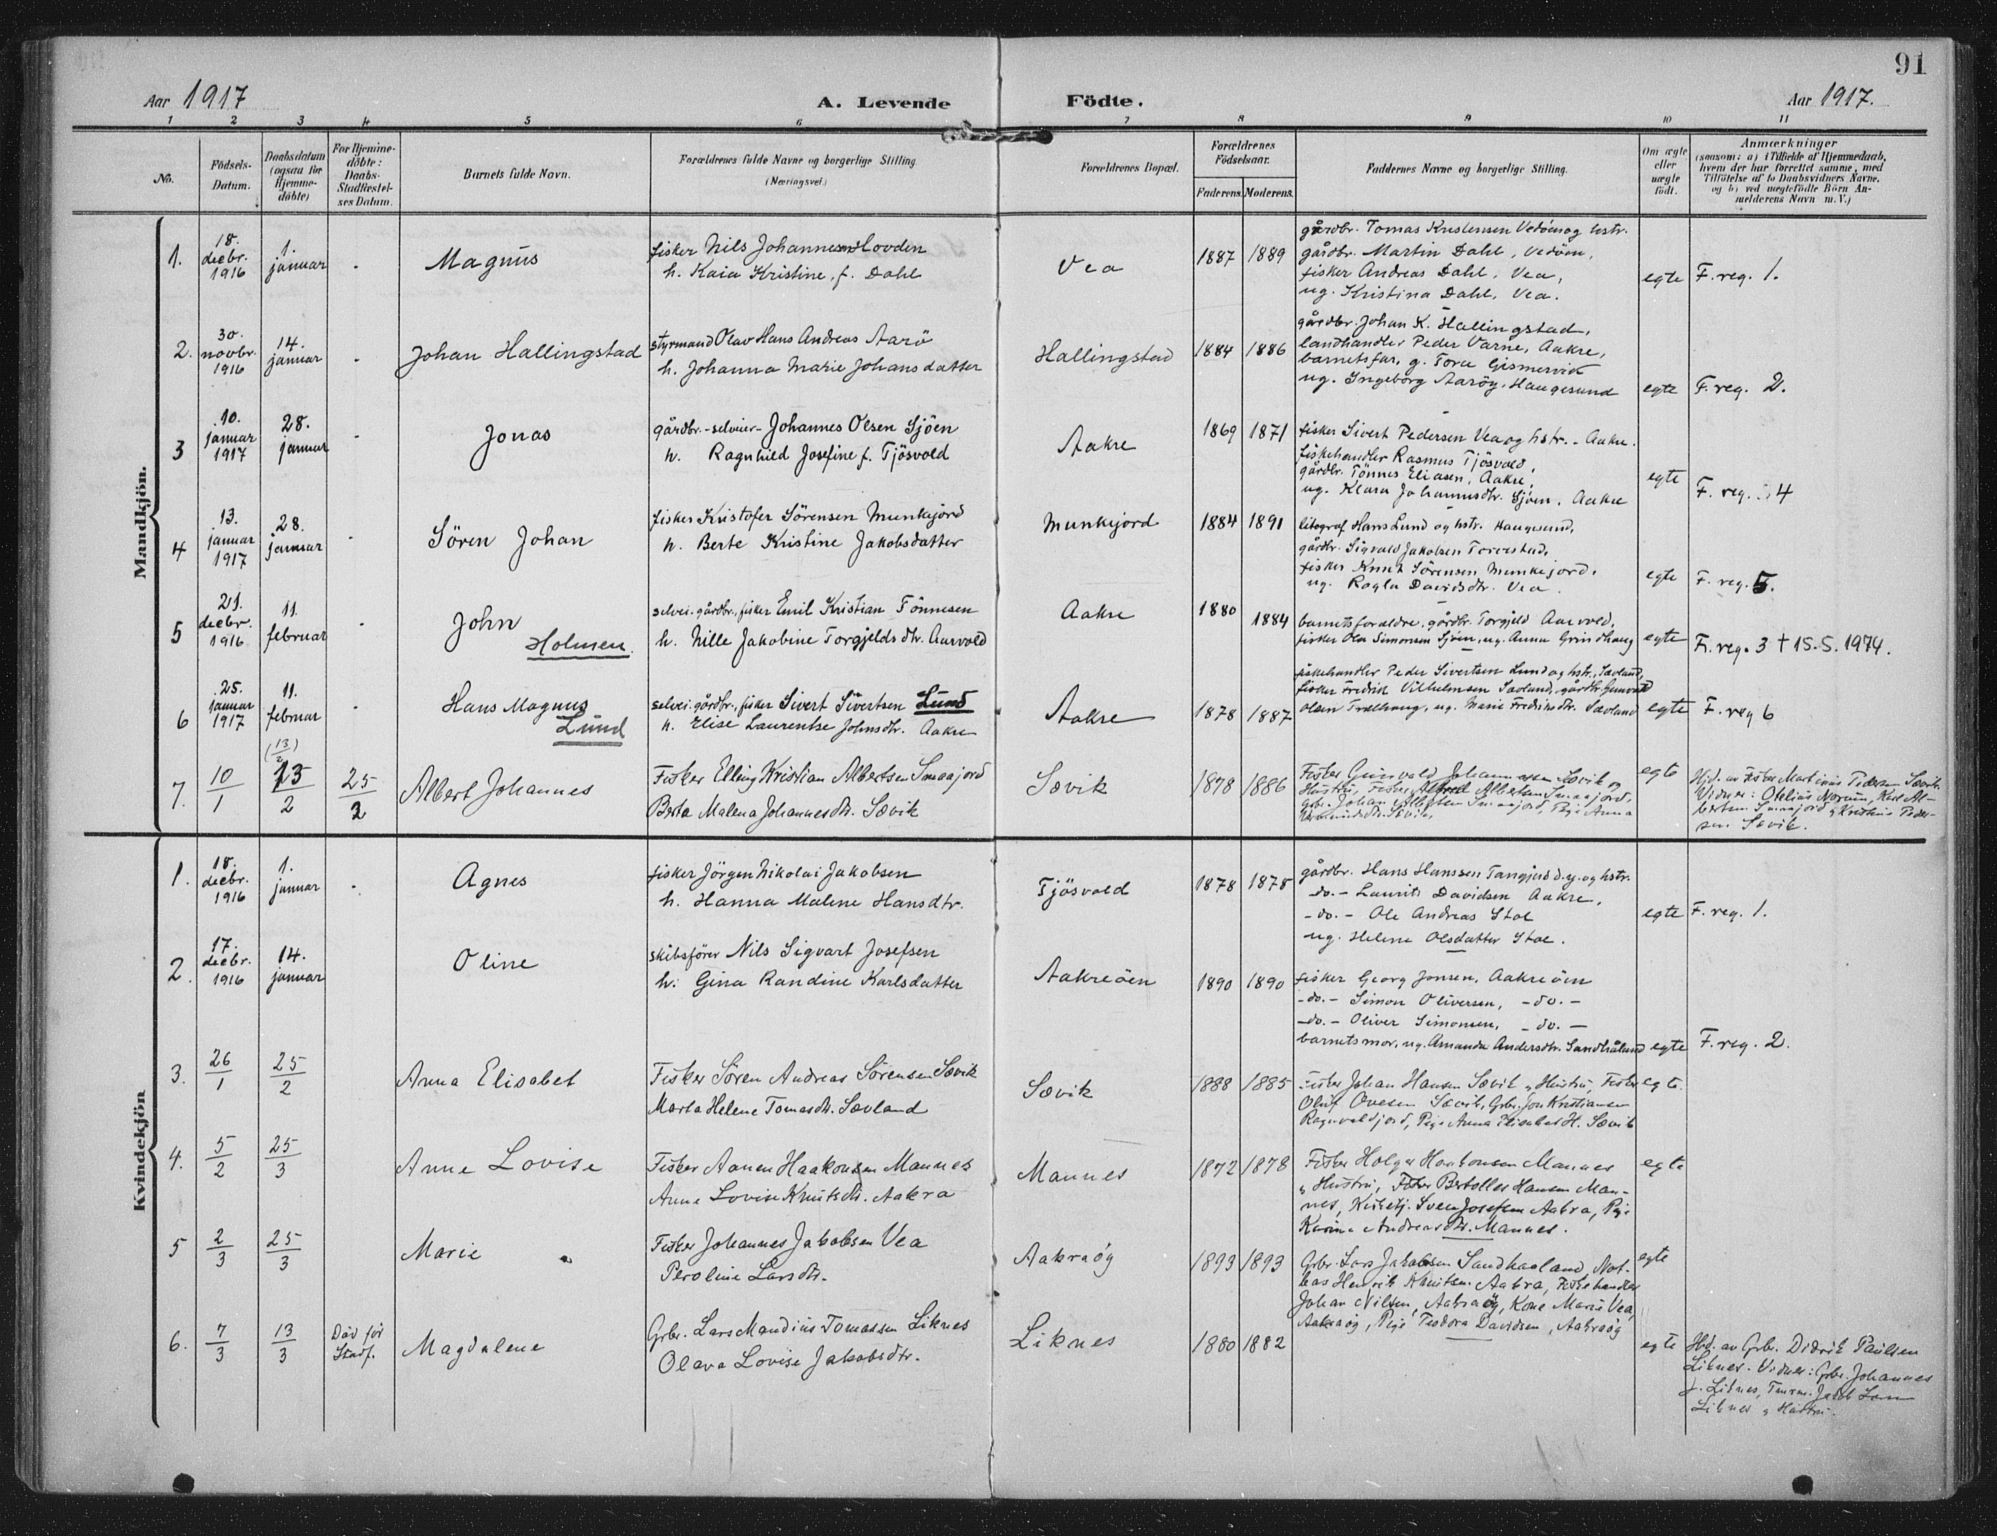 91
Aar 1917 A. Levende Födte. Aar 1917.
1 2 3 4 5 6 7 8 9 10 11
No.
Födsels-
Datum.
Daabsdatum
(ogsaa for
Hjemme-
döbte)
For Hjemme-
döbte:
Daabs-
Stadfæstel-
ses Datum.
Barnets fulde Navn.
Forældrenes fulde Navne og borgerlige Stilling.
(Næringsvei.)
Forældrenes Bopæl.
Forældrenes
Födselsaar.
Faderens. Moderens.
Faddernes Navne og borgerlige Stilling.
Om ægte
eller
uægte
födt.
Anmærkninger
(saasom: a) i Tilfælde af Hjemmedaab,
hvem der har forrettet samme, med
Tilföielse af to Daabsvidners Navne.
og b) ved uægtefödte Börn An-
melderens Navn m. V.)
Mandkjön.
1.
18.
decbr.
1916
1.
januar
Magnus
fisker Nils Johannessen Hovden
h. Kaia Kristine, f. Dahl
Vea
1887 1889
gårdbr. Tomas Kristensen Vedöen og hstr.
gårdbr. Martin Dahl, Vedöen,
fisker Andreas Dahl, Vea,
ug. Kristina Dahl, Vea.
egte
F. reg. 1.
2.
30.
novbr.
1916
14.
januar
Johan Hallingstad
styrmand Olav Hans Andreas Aarö
h. Johanna Marie Johansdatter
Hallingstad
1884 1886
gårdbr. Johan K. Hallingstad,
landhandler Peder Varne, Aakre,
barnets far, g. Tora Gismervik
ug. Ingeborg Aaröy, Haugesund
egte
F. reg. 2.
3
10.
januar
1917
28.
januar
Jonas
gårdbr. - selveier - Johannes Olsen Sjöen
h. Ragnhild Josefine f. Tjösvold
Aakre
1869 1871
fisker Sivert Pedersen Vea og hstr. - Aakre.
fiskehandler Rasmus Tjösvold,
gårdbr. Tönnes Eliasen, Aakre,
ug. Klara Johannesdtr. Sjöen, Aakre
egte
F. reg. 4
4
13.
januar
1917
28.
januar
Sören Johan
fisker Kristofer Sörensen Munkejord
h. Berte Kristine Jakobsdatter
Munkejord
1884 1891
litograf Hans Lund og hstr. Haugesund,
gårdbr. Sigvald Jakobsen Torvestad,
fisker Knut Sörensen Munkejord,
ug. Ragla Davidsdtr. Vea.
egte
F. reg. 5.
5
21.
decbr.
1916
11.
februar
John
Holmen.
selvei. gårdbr., fisker Emil Kristian Tönnesen
h. Nille Jakobine Torgjeldsdtr. Aarvold
Aakre
1880 1884
barnets forældre, gårdbr. Torgjeld Aarvold,
fisker Ola Simonsen Sjöen, ug. Anna Grindhaug
egte
F. reg. 3 + 15.5.1974.
6
25.
januar
1917
11.
februar
Hans Magnus
Lund
selvei. gårdbr., fisker Sivert Sivertsen Lund
h. Elise Laurentse Johnsdtr. Aakre
Aakre
1878 1887
fiskehandler Peder Sivertsen Lund og hstr., Sævland,
fisker Fredrik Vilhelmsen Sævland, gårdbr. Gunvald
Olsen Trælhaug, ug. Marie Fredriksdtr. Sævland
egte
F. reg 6
7.
10/1
(13/2)
25/2
25/2
Albert Johannes
Fisker Elling Kristian Albertsen Smaajord
Berta Malena Johannesdtr. Sævik
Sævik
1878 1886
Fisker Gunvald Johannessen Sævik og
Hustru, Fisker Alfred Albertsen Smaajord,
Grbr. Johan Albertsen Smaajord, Pige Anna
egte
Hjd. av Fisker Martinius Pedersen Sævik.
Vidner: Otelius Norum, Karl Al-
bertsen Smaajord, Kristine Peder-
sen Sævik.
Kvindekjön
1.
18.
decbr.
1916
1.
januar
Agnes
fisker Jörgen Nikolai Jakobsen
h. Hanna Malene Hansdtr.
Tjösvold
1878 1878
gårdbr. Hans Hanssen Tangjerd g. og hstr.
-do.- Laurits Davidsen Aakre,
-do.- Ole Andreas Stol
ug. Helene Olsdatter Stol.
egte
F. reg. 1.
2.
17.
decbr.
1916
14.
januar
Oline
skibsförer Nils Sigvart Josefsen
h. Gina Randine Karlsdatter
Aakreöen
1890 1890
fisker Georg Jonsen, Aakreöen
-do.- Simon Oliversen, -do.-
-do.- Oliver Simonsen, -do.-
barnets mor, ug. Amanda Andersdtr. Sandhåland
egte
F. reg. 2.
3.
26/1
25/2
Anna Elisabet
Fisker Sören Andreas Sörensen Sævik
Marta Helene Tomasdtr. Sævland
Sævik
1888 1885
Fisker Johan Hansen Sævik & Hustru, Fisker
Oluf Ovesen Sævik, Grbr. Jon Kristiansen
Ragnvaldjord, Pige Anna Elisabet H. Sævik
egte
4.
5/2
25/3
Anne Lovise
Fisker Aanen Haakonsen Mannes
Anne Lovise Knutsdtr. Aakra
Mannes
1872 1878
Fisker Holger Haakonsen Mannes
& Hustru, Fisker Bertolles Hansen Man-
nes, Kirketj. Sven Josefsen Aakra, Pige
Karine Andreasdtr. Mannes.
egte
5
2/3
25/3
Marie
Fisker Johannes Jakobsen Vea
Peroline Larsdtr.
Aakraög
1893 1893
Grbr. Lars Jakobsen Sandhaaland, Not-
bas Henrik Knutsen Aakra, Fiskehandler
Johan Nilsen, Aakraög, Kone Marie Vea,
Aakraög, Pige Teodora Davidsen, Aakraög
egte
6.
7/3
13/3
Död för
Stadf.
Magdalene
Grbr. Lars Mandius Tomassen Liknes
Olava Lovise Jakobsdtr.
Liknes
1880 1882
egte
Hjd. av Grbr. Didrik Paulsen
Liknes. Vidner: Grbr. Johannes
J. Liknes,
Liknes & Hustru.